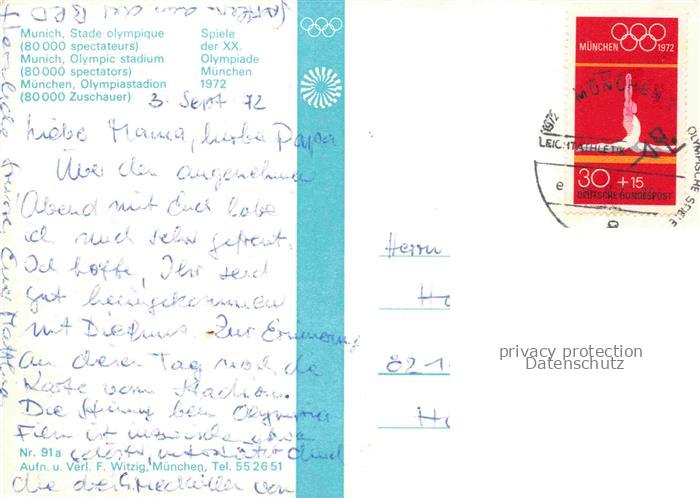 Munich, Stade olympique
(80 000 spectateurs)
Munich, Olympic stadium
(80 000 spectators)
München, Olympiastadion
(80 000 Zuschauer)
Spiele
der XX.
Olympiade
München
1972
3. Sept 72
Liebe Mama, lieber Papa
Über den angenehmen
Abend mit Euch habe
ich mich sehr gefreut.
Ich hoffe, Ihr seid
gut heimgekommen
mit Zur Erinnerung
an diesen Tag noch die
Karte vom Stadion.
Die beim Olympia
Film ist etwas
durch
die von
der BRD
Herzliche Grüße Euer
Nr. 91a
Aufn. u. Verl. F. Witzig, München, Tel. 55 26 51
MÜNCHEN 1972
30 +15
DEUTSCHE BUNDESPOST
MÜNCHEN
1972
LEICHTATHLETIK
OLYMPISCHE SPIELE
e
Herrn
Ho
821
Ho
privacy protection
Datenschutz